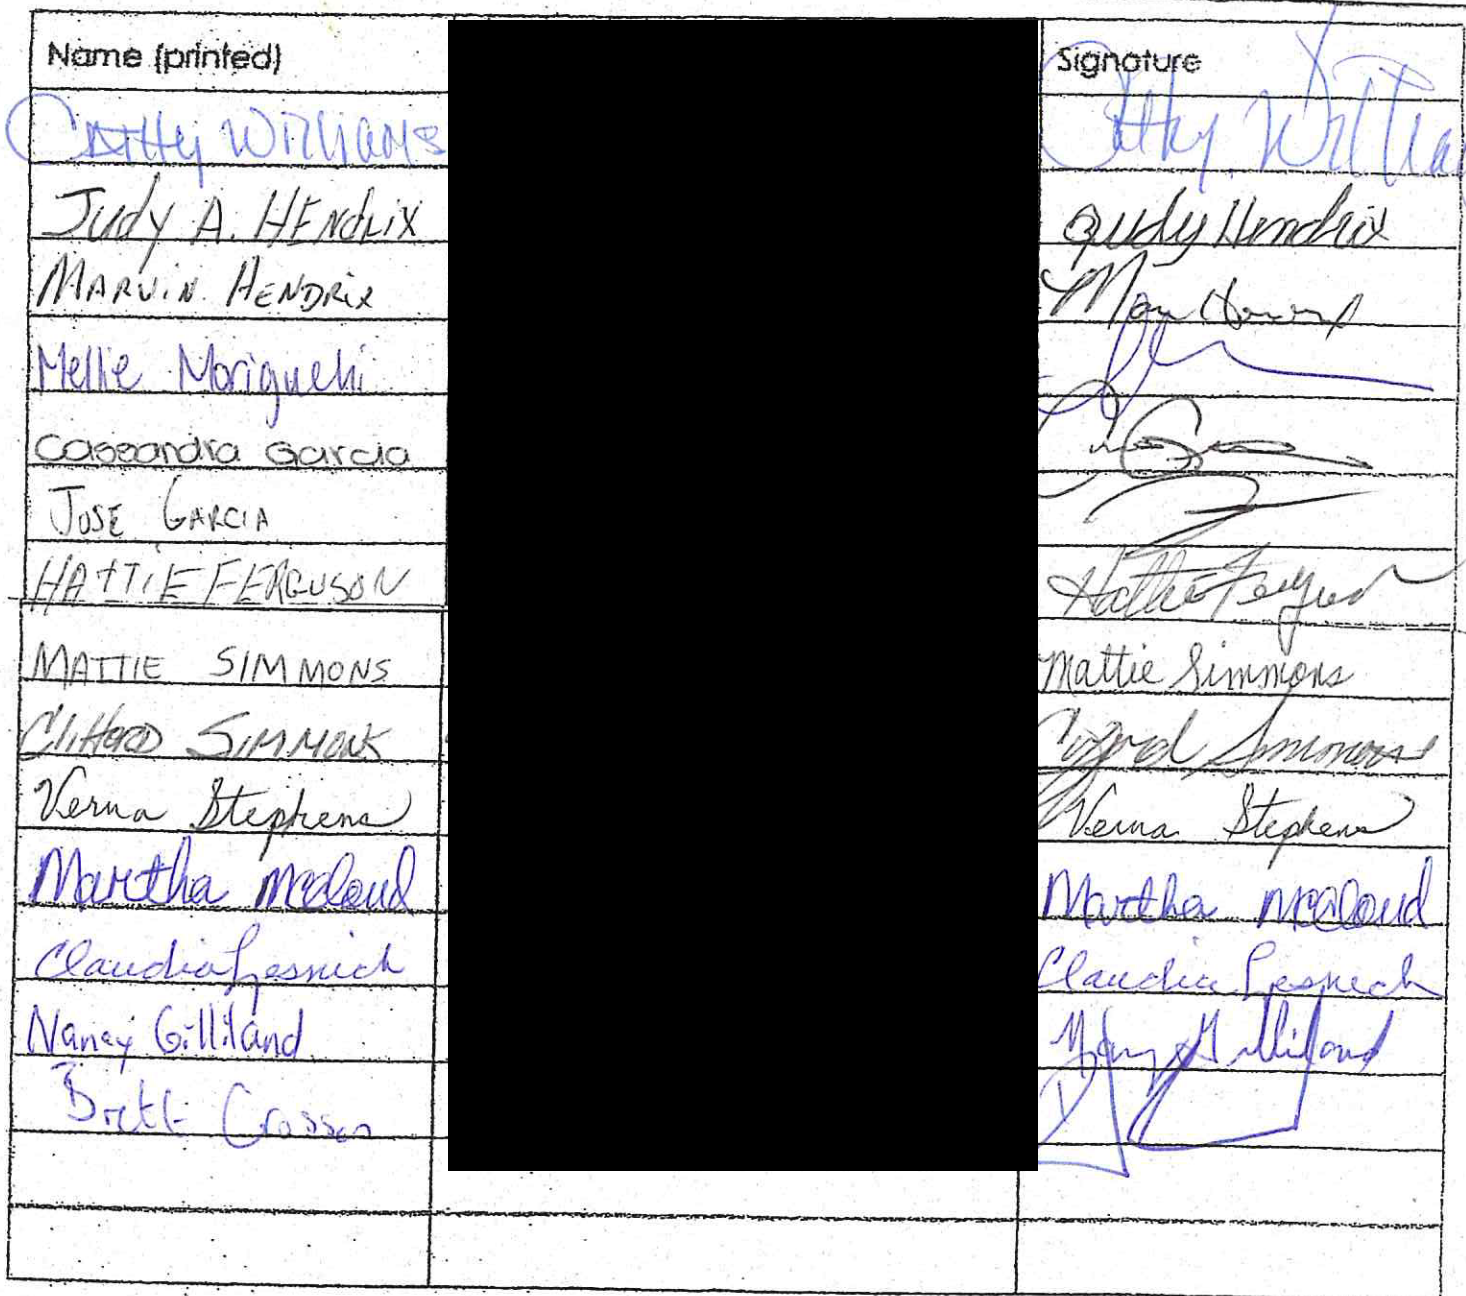 Name (printed) Signature
Cathy Williams Cathy Williams
Judy A. HENdRIX Judy Hendrix
MARVIN HENDRIX
Mellie Moriguchi
Cassandra Garcia
JOSE GARCIA
HATTIE FERGUSON Hattie Ferguson
MATTIE SIMMONS Mattie Simmons
Clifford SIMMONS Clifford Simmons
Verna Stephens Verna Stephens
Martha McCloud Martha McCloud
Claudia Lesnick Claudia Lesnick
Nancy Gilliland Nancy Gilliland
Brett Crosson